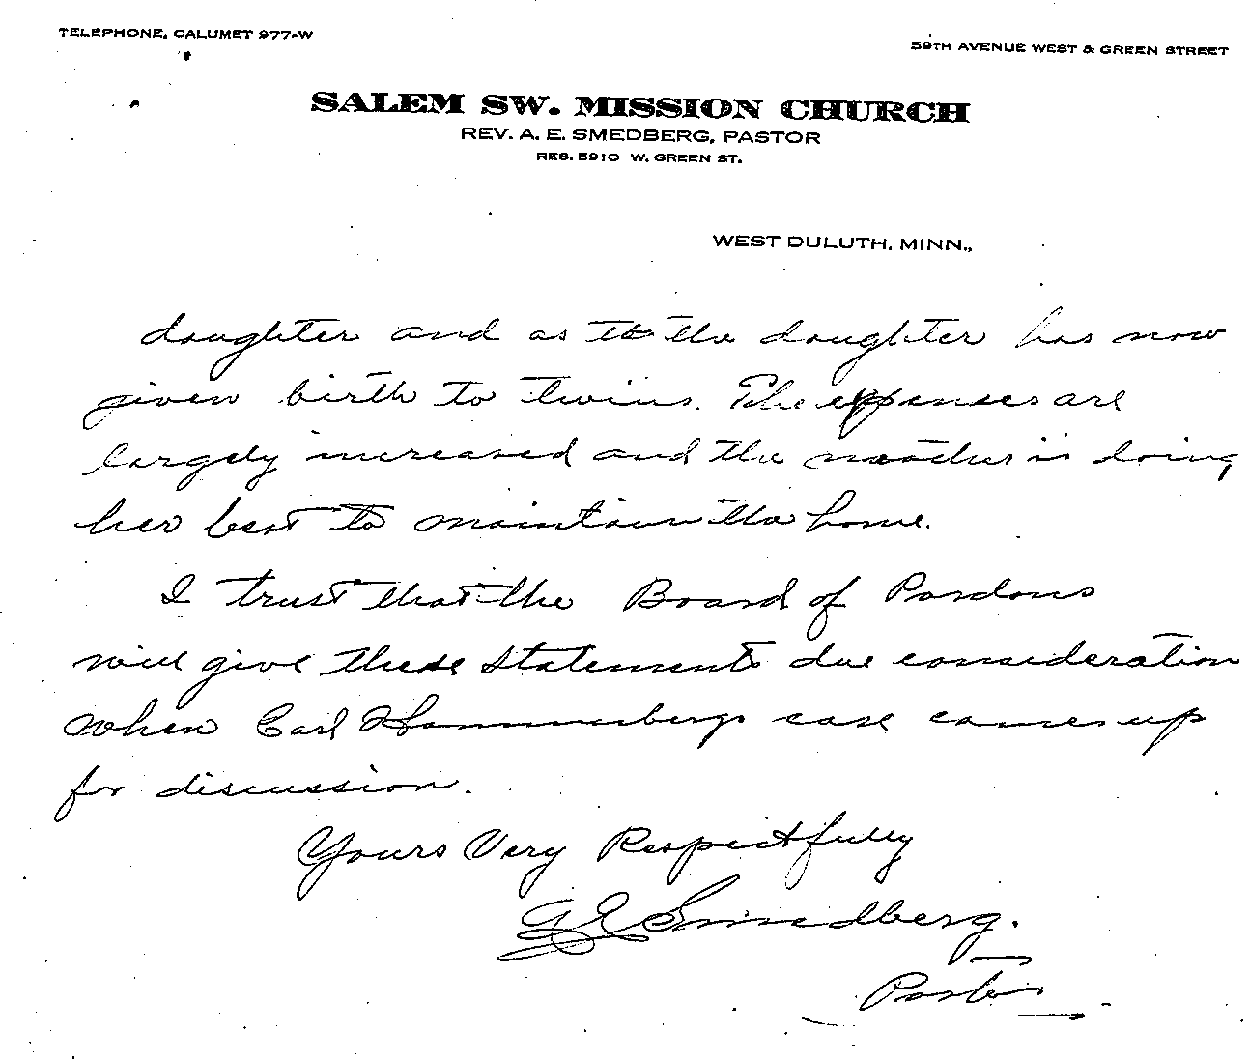 TELEPHONE, CALUMET 977-W
59TH AVENUE WEST & GREEN STREET
SALEM SW. MISSION CHURCH
REV. A. E. SMEDBERG, PASTOR
RES. 5910 W. GREEN ST.
WEST DULUTH, MINN.,
daughter and as to the daughter has now
given birth to twins. The expenses are
largely increased and the mother is doing
her best to maintain the home.
I trust that the Board of Pardons
will give these statements due consideration
when Carl Hammerbergs case comes up
for discussion.
Yours Very Respectfully
A E Smedberg.
Pastor